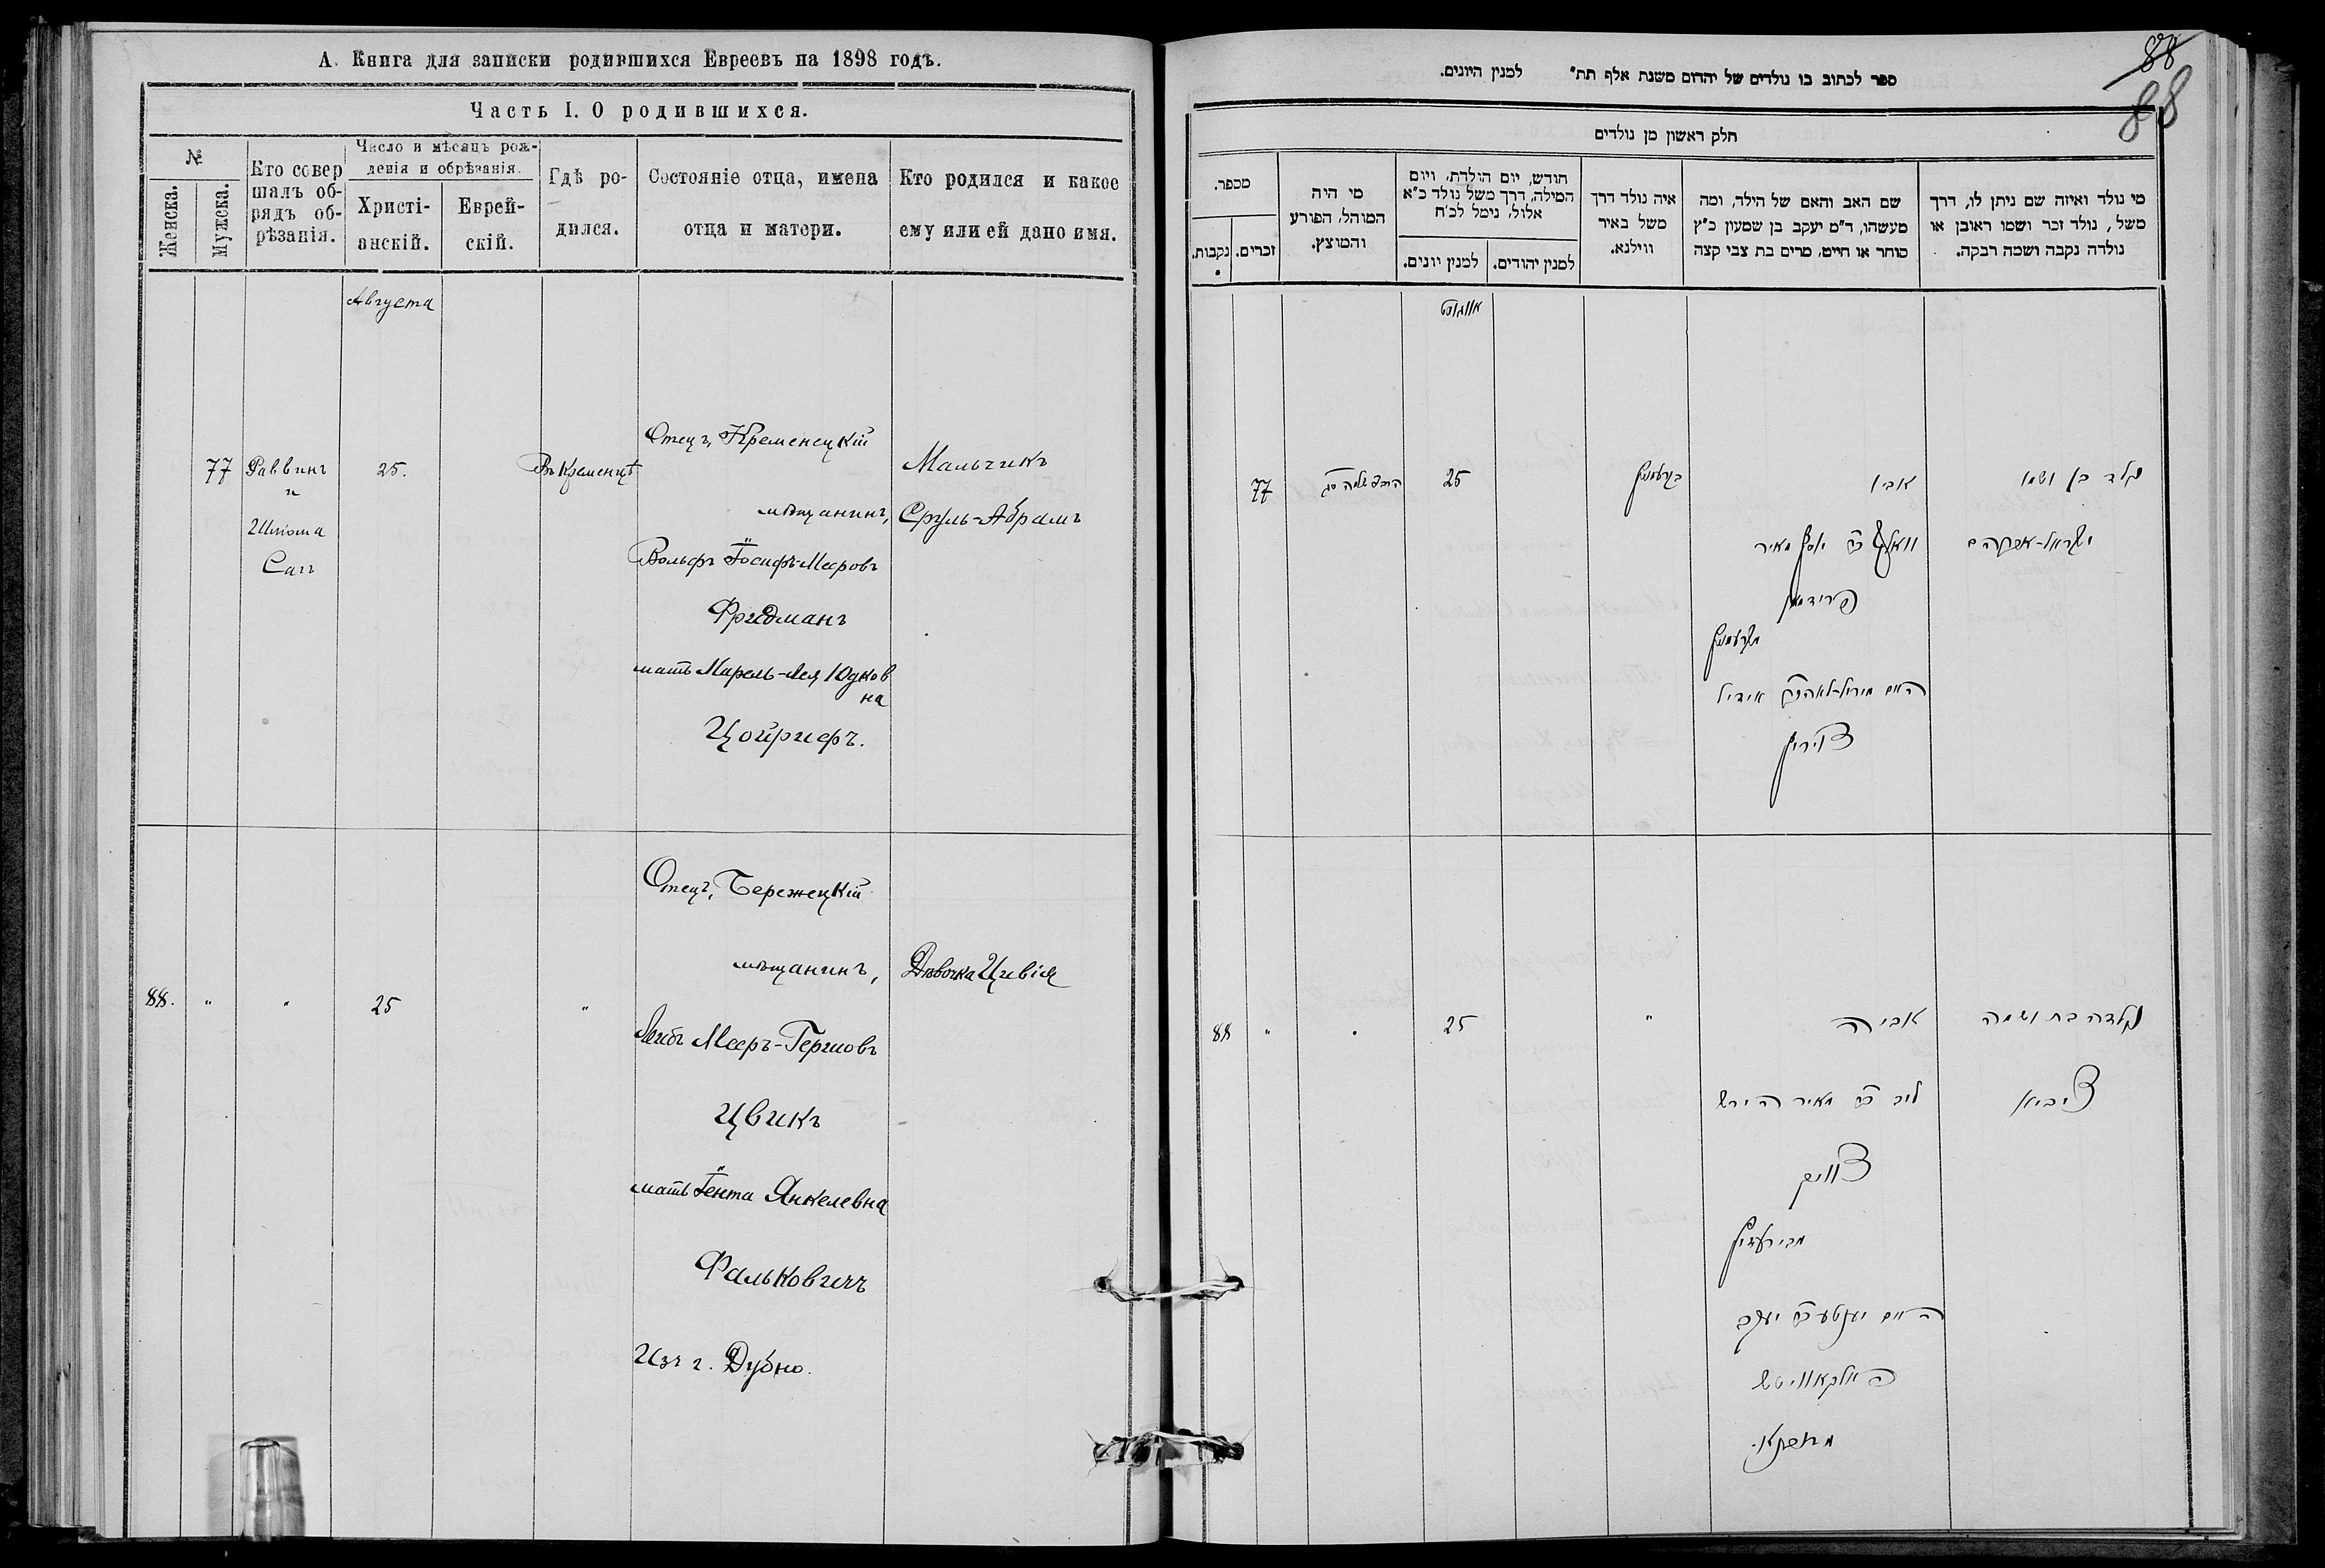 А. Книга для записки родившихся Евреевъ на 1898 годъ.
Часть I. О родившихся.
№
Женска.
Мужска.
Кто совер
шалъ об-
рядъ об-
рѣзанія.
Число и мѣсяцъ рож-
денія и обрѣзанія.
Христі-
анскій.
Еврей-
скій.
Гдѣ ро-
дился.
Состояніе отца, имена
отца и матери.
Кто родился и какое
ему или ей дано имя.
Августа
77
Раввинъ
и
Шлома
Сагъ
25.
Въ Кременцѣ
Отецъ, Кременецкій
мѣщанинъ,
Вольфъ Іосифъ-Мееровъ
Фридманъ
мать Марель-Лея Юдков
на
Цойрифъ.
Мальчикъ
Сруль-Абрамъ
88.
"
"
25
"
Отецъ, Бережецкій
мѣщанинъ,
Лейбъ Мееръ-Гершовъ
Цвикъ
мать Іента Янкелевна
Фальковичъ
Изъ г. Дубно.
Дѣвочка Цивія
88
88
ספר לכתוב בו נולדים של יהדום משנת אלף תת״ למנין היונים.
חלק ראשון מן נולדים
מי נולד ואיזה שם ניתן לו, דרך
משל, נולד זכר ושמו ראובן או
נולדה נקבה ושמה רבקה.
שם האב והאם של הילד, ומה
מעשהו, ד״מ יעקב בן שמעון כ״ץ
סוחר או חייט, מרים בת צבי קצה
איה נולד דרך
משל באיר
ווילנא.
חודש, יום הולדת, ויום
המילה, דרך משל נולד כ״א
אלול, נימל לכ״ח
למנין יהודים.
למנין יונים.
מי היה
המוהל, הפורע
והמוצץ.
מכפר.
זכרים.
נקבות.
אווגוסט
נולד בן ושמו
ישראל-אברהם
אביו
וואלף ב״ר יוסף מאיר
פרידמאן
מקרעמניץ
האם מירל-לאה ב״ר אידיל
צוירי״ף
בקרעמניץ
25
77
נולדה בת ושמה
ציביא
אביה
ליב ב״ר מאיר הירש
צוויק
האם יענטע ב״ר יעקב
פאלקאוויטש
מדובנא.
"
25
"
"
88